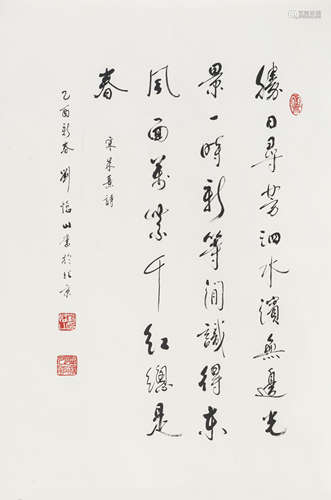 勝日尋芳泗水濱無邊光
景一時新等閒識得東
風面萬紫千紅總是
春
宋朱熹詩
乙酉新春劉山書於北京